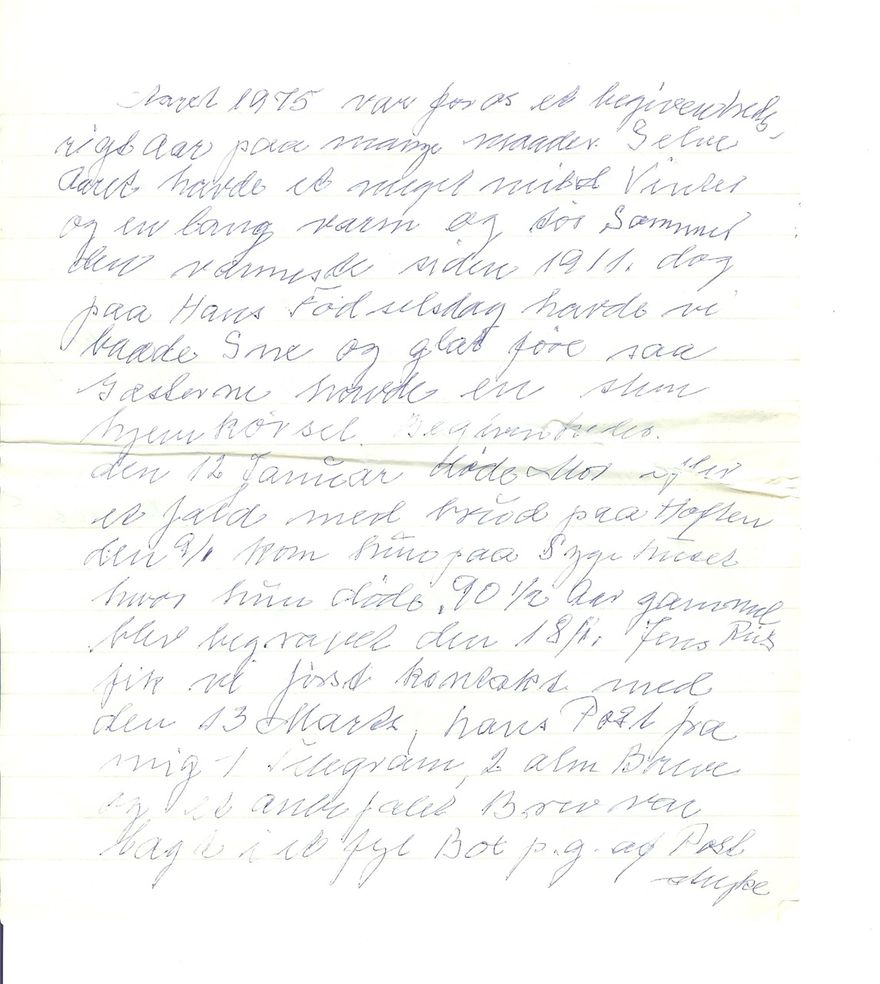 Aaret 1975 var for os et begivenheds-
rigt Aar paa mange maader. Selve
Aaret havde et meget mild Vinter
og en lang varm og tør Sommer
den varmeste siden 1911. dog
paa Hans Födselsdag havde vi
baade Sne og glat føre saa
Gæsterne havde en slem
hjemkörsel. Begivenheder.
den 12 Januar døde Mor efter
et fald med brud paa Hoften
den 9/1 kom hun paa Sygehuset
hvor hun døde, 90 1/2 Aar gammel
blev begravet den 18/1. Jens
fik vi först kontakt med
den 13 Marts, hans Post fra
mig 1 Telegram, 2 alm Breve
og et anbefalet Brev var
lagt i et fejl Box p.g. af Post